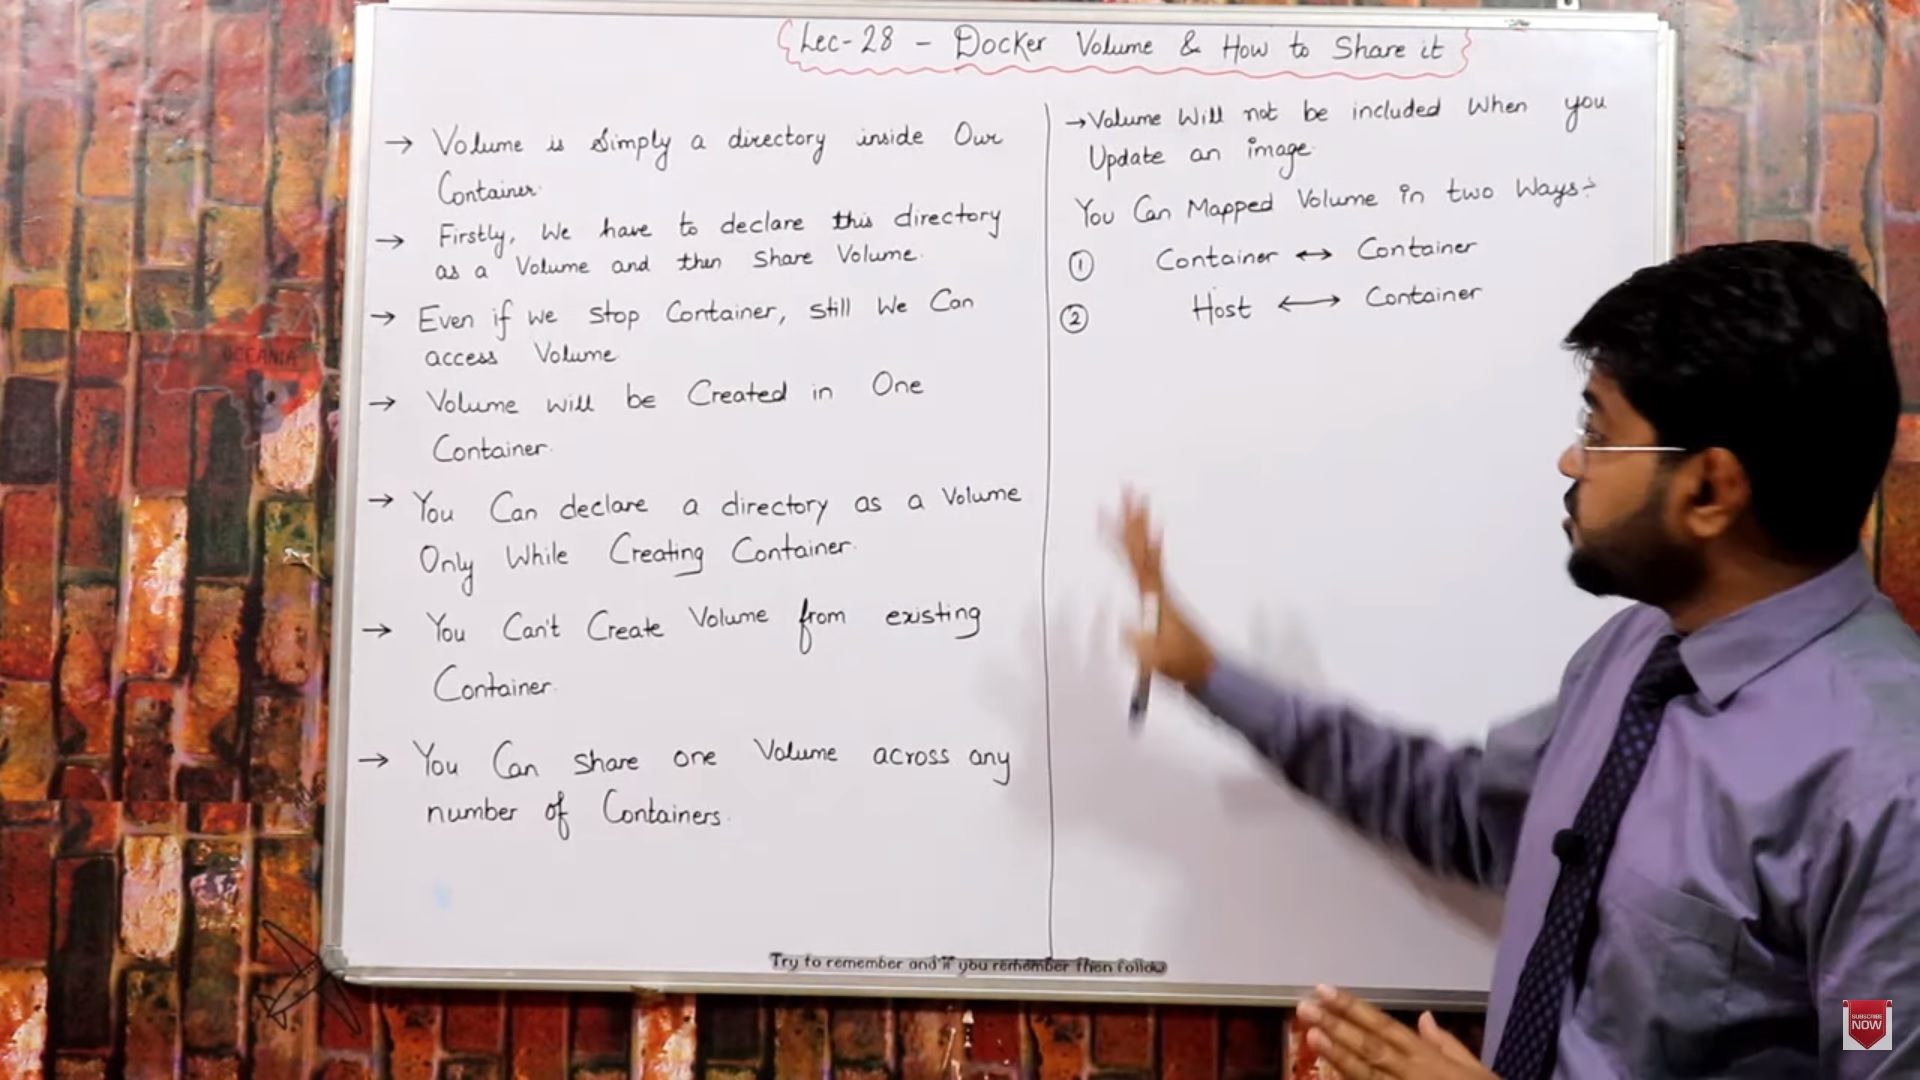 Lec-28 - Docker Volume & How to Share it
→ Volume is Simply a directory inside Our
Container.
→ Firstly, We have to declare this directory
as a Volume and then Share Volume.
→ Even if we stop Container, still We Can
access Volume
→ Volume will be Created in One
Container.
→ You Can declare a directory as a Volume
Only While Creating Container.
→ You Can't Create Volume from existing
Container.
→ You Can share one Volume across any
number of Containers.
→ Volume Will not be included When you
Update an image.
You Can Mapped Volume in two Ways:-
① Container ↔ Container
② Host ↔ Container
Try to remember and if you remember then follow
OCEANIA
SUBSCRIBE
NOW